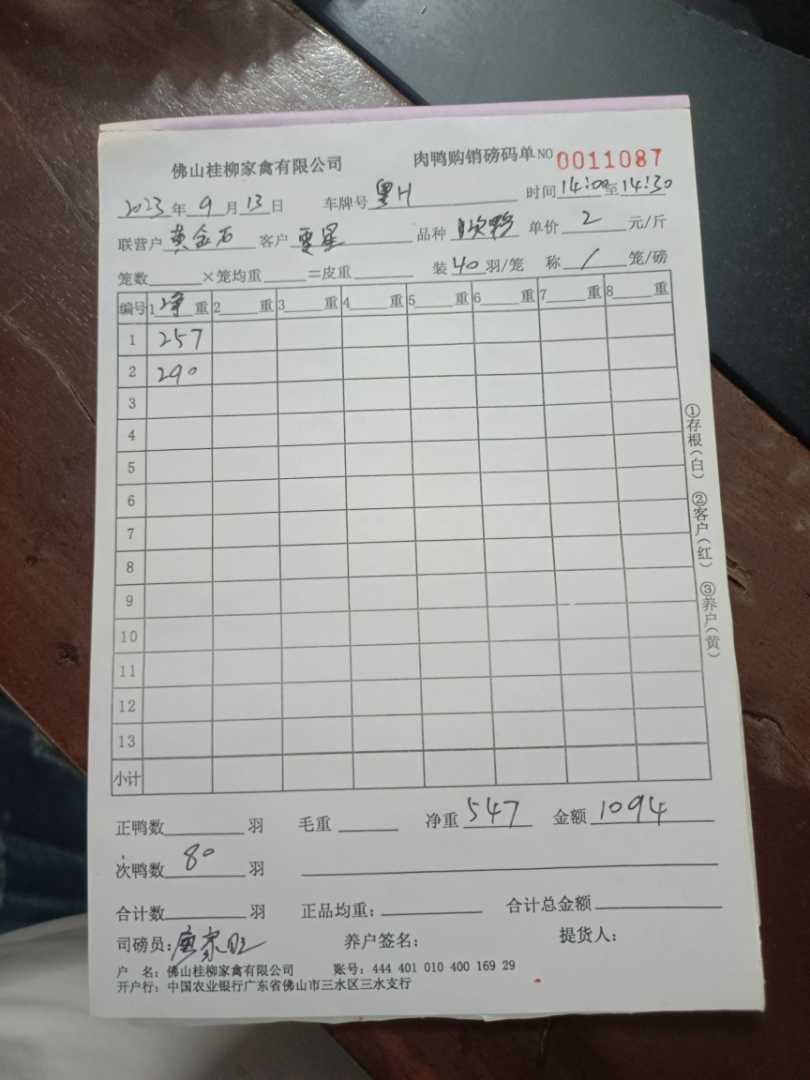 佛山桂柳家禽有限公司 肉鸭购销磅码单 NO 0011087
2023年9月13日 车牌号 时间14:00至14:30
联营户黄金石 客户 品种次鸭 单价2元/斤
笼数 ×笼均重 =皮重 装40羽/笼 称1笼/磅
编号 1净重 2重 3重 4重 5重 6重 7重 8重
1 257
2 290
3
4
5
6
7
8
9
10
11
12
13
小计
正鸭数 羽 毛重 净重547 金额1094
次鸭数80羽
合计数 羽 正品均重: 合计总金额
司磅员: 养户签名: 提货人:
户 名: 佛山桂柳家禽有限公司 账号: 444 401 010 400 169 29
开户行: 中国农业银行广东省佛山市三水区三水支行
①存根(白) ②客户(红) ③养户(黄)